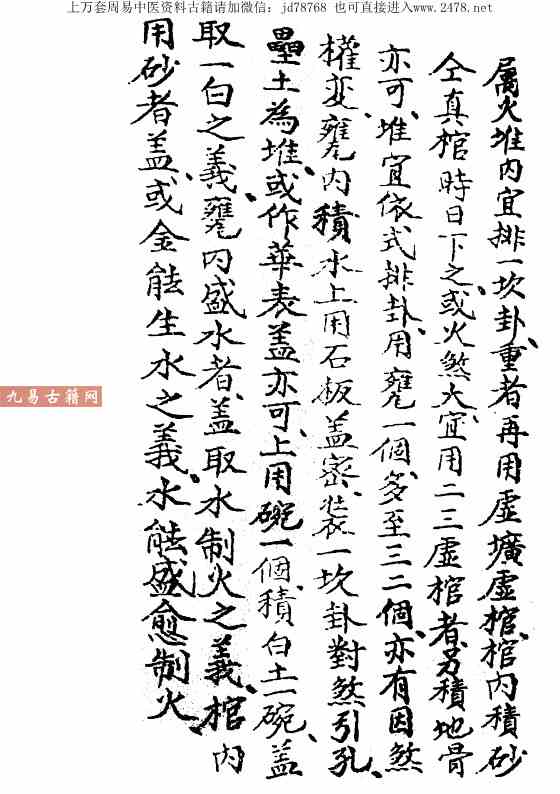 上万套周易中医资料古籍请加微信：jd78768 也可直接进入www.2478.net
属火堆内宜排一坎卦、重者再用虚壙虚棺、棺内積砂
仝真棺時日下之、或火煞大、宜用二三虚棺者、另積地骨
亦可、堆宜依式排卦、用甕一個、多至三二個、亦有因煞
權变、甕内積水上用石板盖密、装一坎卦對煞引孔、
壘土為堆、或作華表盖亦可、上用碗一個、積白土一碗、盖
取一白之義、甕内盛水者、盖取水制火之義、棺内
用砂者盖、或金能生水之義、水能盛愈制火
九易古籍网